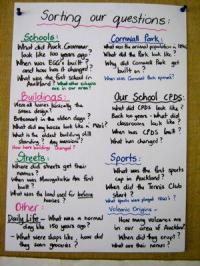 Sorting our questions:
Schools:
What did Auck Grammar
look like 100 years ago?
When was EGS built?
and how has it changed?
What was the first school in
Auckland? What other schools
are in our area?
Buildings:
Were all houses basically the
same design?
in the olden days?
What did my house look like in
What is the oldest building still
standing? Any mansions?
How have buildings changed?
Streets:
Where did streets get their
names?
When was Maungawhau
built?
What was the land used for before
houses?
Other:
Daily Life – What was a normal
day like 150 years ago?
– What were shops like, how did
they get groceries?
Cornwall Park:
What was the animal population in
What did the Park look like?
Why did Cornwall Park get
built on?
When was Cornwall Park opened?
Our School EPDS:
What did EPDS look like?
Back 90 years - what did
classrooms look like?
When was EPDS built?
What has changed?
Sports:
What was the first sport in
Auckland?
When did the Tennis Club
Start?
What sports were played
Volcanic Origins -
How many volcanoes are
in our area of Auckland?
When did they erupt?
What are their names?